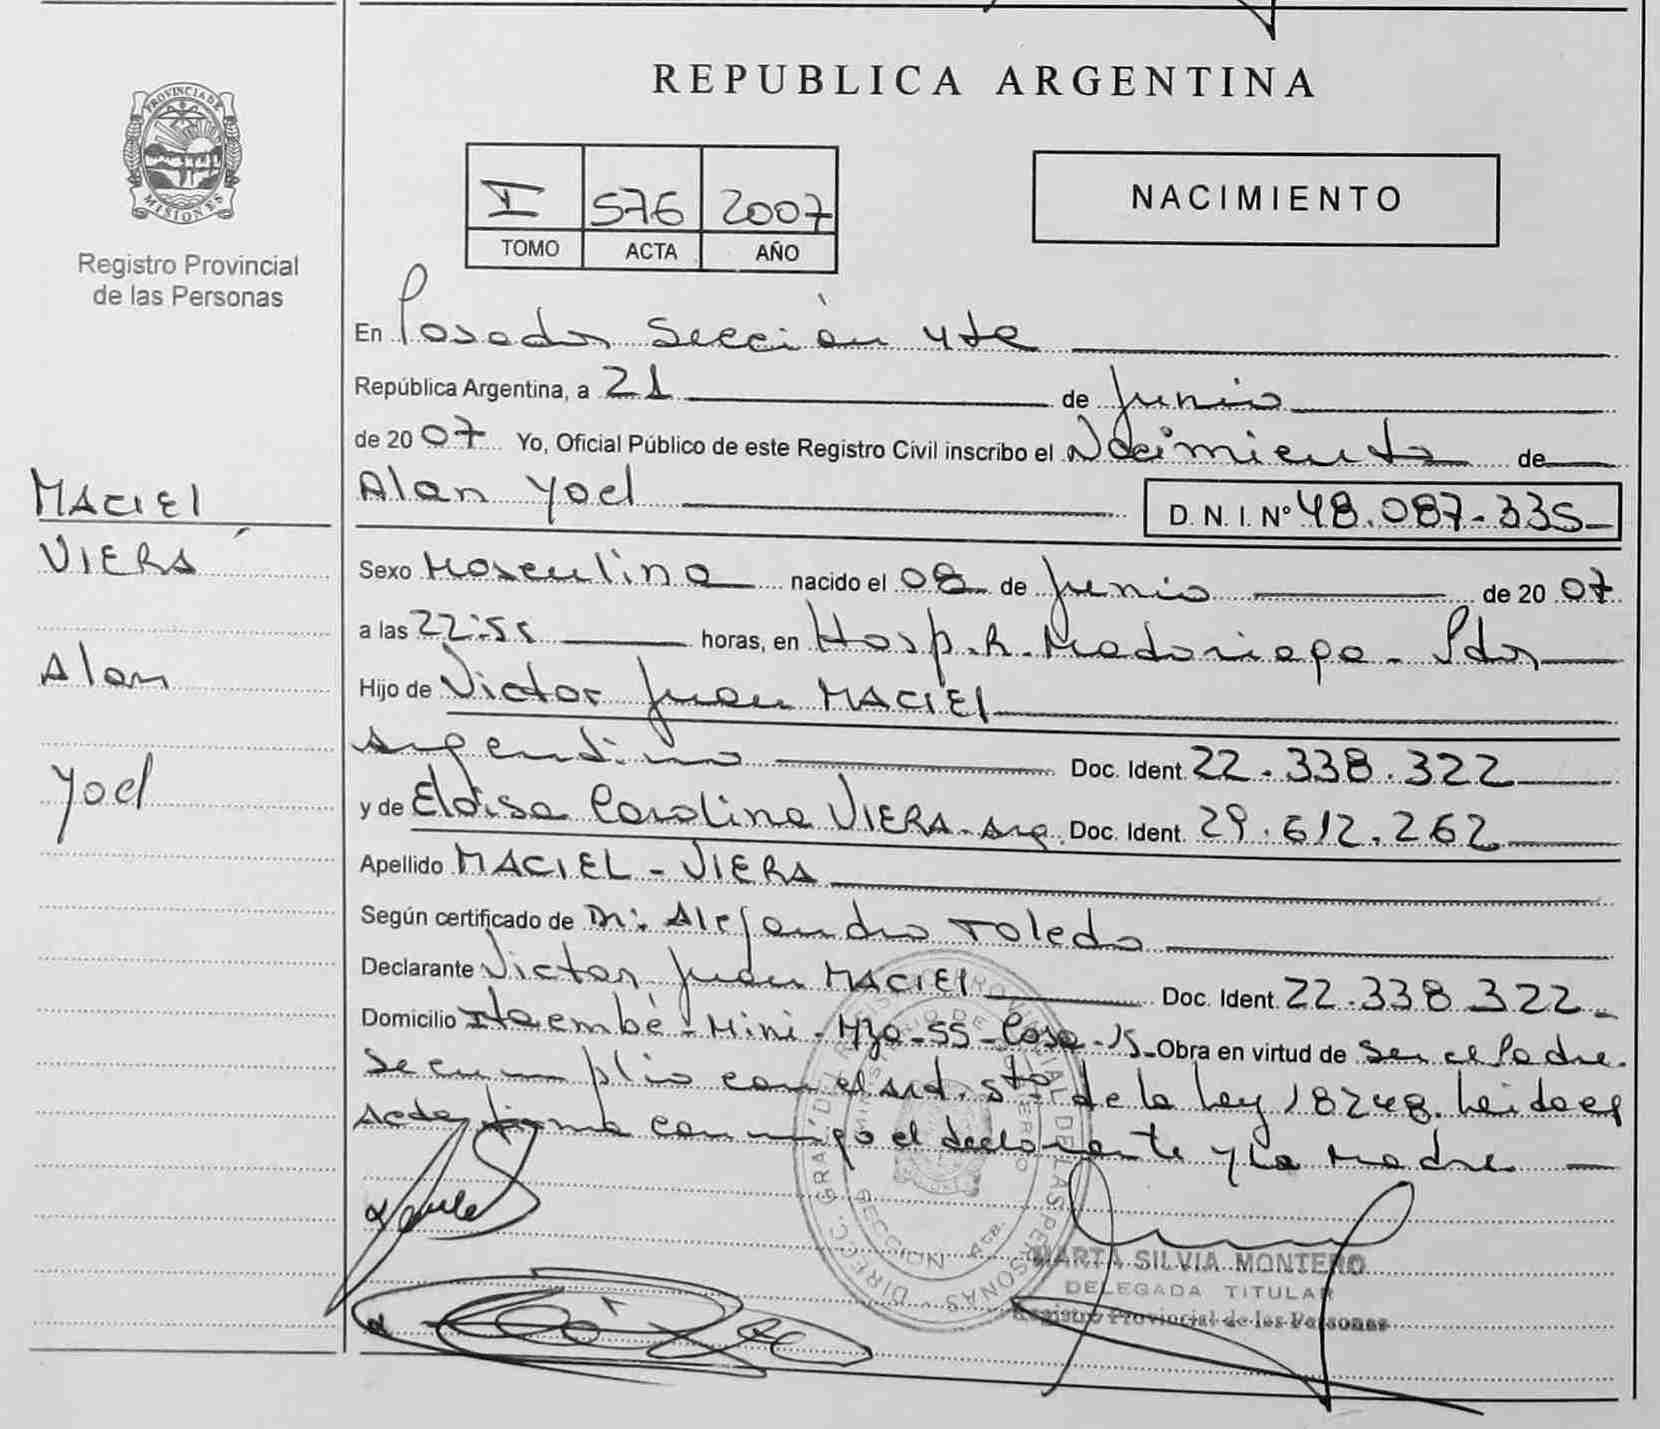 REPUBLICA ARGENTINA
PROVINCIA DE
MISIONES
Registro Provincial
de las Personas
I 576 2007
TOMO ACTA AÑO
NACIMIENTO
En Posadas Sección 4ta
República Argentina, a 21 de Junio
de 20 07 Yo, Oficial Público de este Registro Civil inscribo el Nacimiento de
Alan Yoel D. N. I. Nº 48.087-335-
MACIEL
VIERA
Alan
Yoel
Sexo Masculino nacido el 08 de Junio de 20 07
a las 22:55 horas, en Hosp. R. Madariaga - Pdas
Hijo de Victor Juan MACIEL
Argentino Doc. Ident. 22.338.322
y de Eloisa Carolina VIERA - Arg. Doc. Ident. 29.612.262
Apellido MACIEL - VIERA
Según certificado de Dr: Alejandro Toledo
Declarante Victor Juan MACIEL Doc. Ident. 22.338.322-
Domicilio Itaembé - Mini - Mza - 55 - Casa - 15 - Obra en virtud de Ser el Padre.
Se cumplio con el art. 5to de la Ley 18248. Leida el
Acta firma conmigo el declarante y la Madre
MARTA SILVIA MONTERO
DELEGADA TITULAR
Registro Provincial de las Personas
SECCION 4ta.